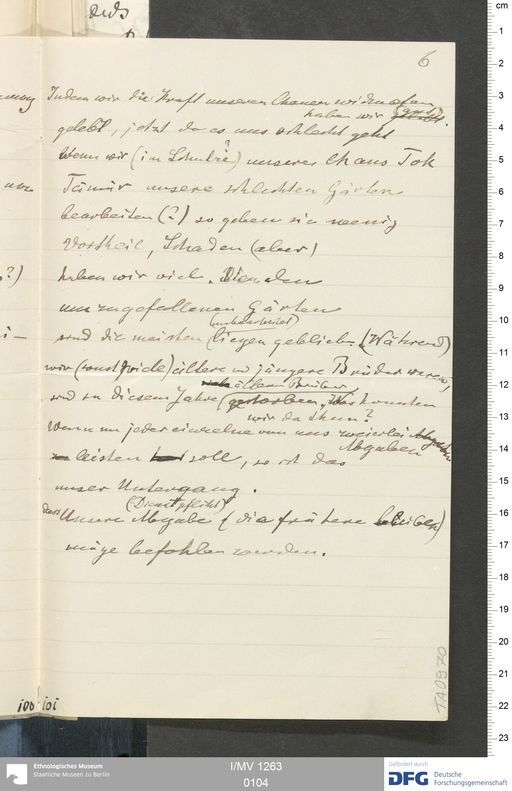 6
Indem wir die Kraft unseren Chanen widmeten
haben wir
gelebt, jetzt da es uns schlecht geht
Wenn wir (im Schulze?) unseres Chans Tok
Tämür unsere schlechten Gärten
bearbeiten (?) so geben sie wenig
Vortheil, Schaden (aber)
haben wir viel. Von den
uns zugefallenen Gärten
(unbearbeitet)
sind die meisten liegen geblieben. (Während)
wir (sonst viele) ältere u. jüngere Brüder waren,
älteren Brüder
sind in diesem Jahre gestorben, Was konnten
wir da thun?
Wenn nun jeder einzelne von uns zweierlei
Abgaben
leisten soll, so ist das
unser Untergang.
(Dienstpflicht)
dass Unsere Abgabe (die frühere bleiben)
möge befohlen werden.
?)
100 101
TA0970
cm
1
2
3
4
5
6
7
8
9
10
11
12
13
14
15
16
17
18
19
20
21
22
23
Ethnologisches Museum
Staatliche Museen zu Berlin
I/MV 1263
0104
Gefördert durch
DFG Deutsche
Forschungsgemeinschaft